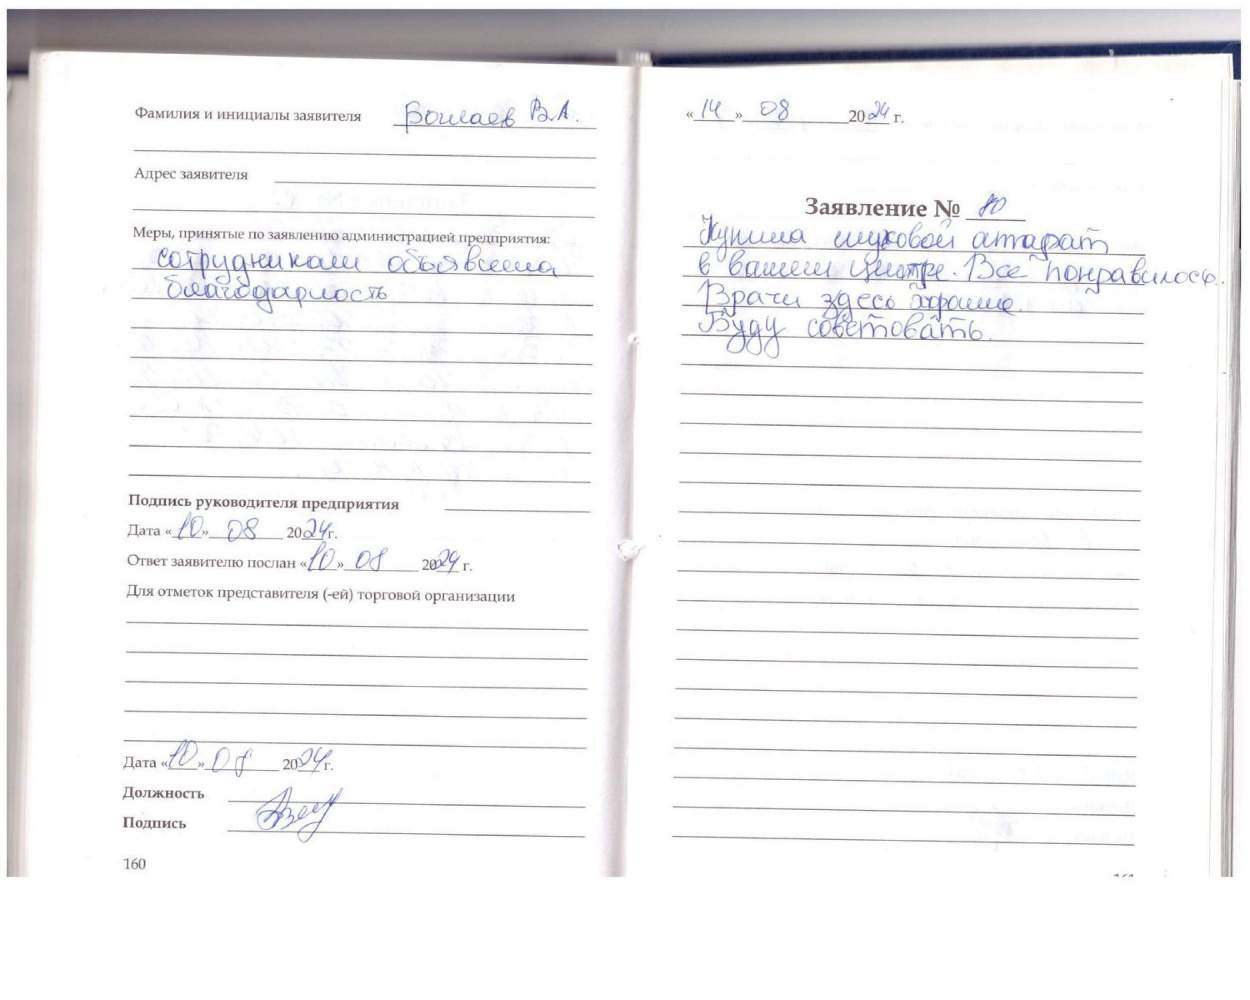 Фамилия и инициалы заявителя Бошаев В.А.
Адрес заявителя
Меры, принятые по заявлению администрацией предприятия:
сотрудникам объявлена
благодарность
Подпись руководителя предприятия
Дата «10» 08 2024г.
Ответ заявителю послан «10» 08 2024 г.
Для отметок представителя (-ей) торговой организации
Дата «10» 08 2024г.
Должность
Подпись
160
«14» 08 2024 г.
Заявление № 80
Купила слуховой аппарат
в вашем центре. Все понравилось.
Врачи здесь хорошие.
Буду советовать.